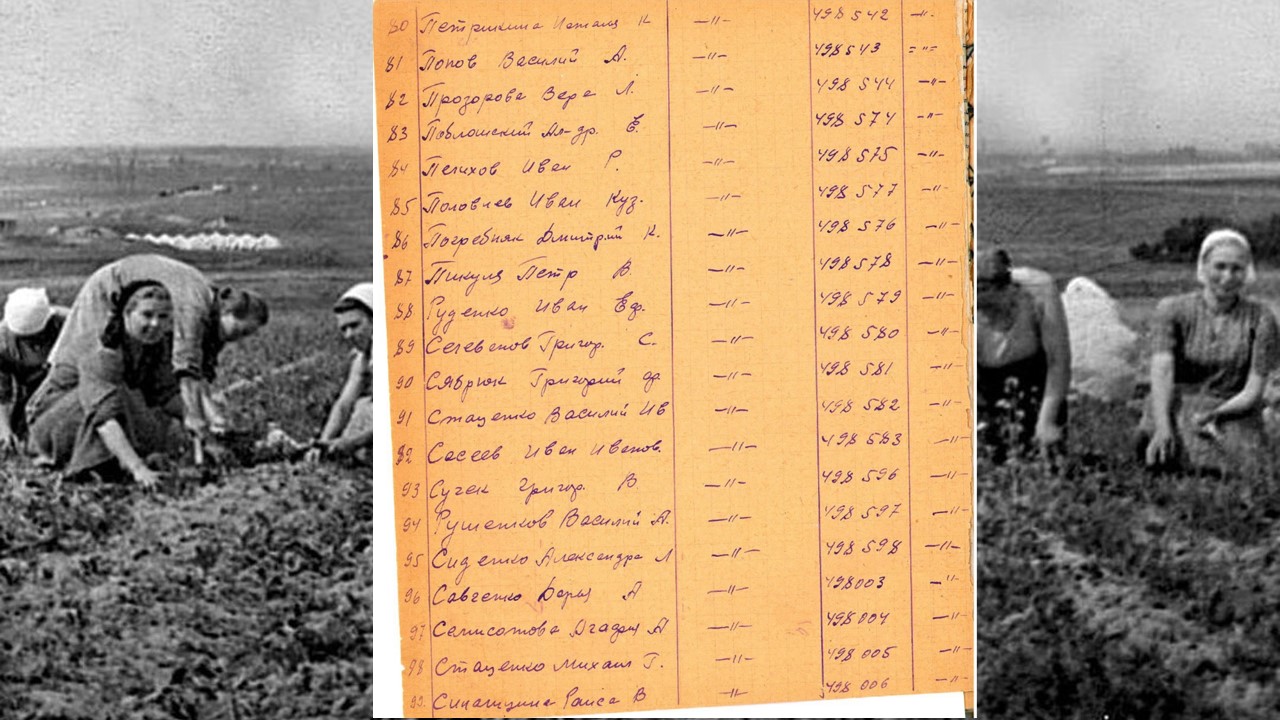 80 Петрикина Наталия К —"— 498542 —"—
81 Попов Василий А. —"— 498543 —"—
82 Прозорова Вера Л. —"— 498544 —"—
83 Павлошский Ал-др. Е. —"— 498574 —"—
84 Пелихов Иван Р. —"— 498575 —"—
85 Половнев Иван Куз. —"— 498577 —"—
86 Погребняк Дмитрий К. —"— 498576 —"—
87 Пикуля Петр В. —"— 498578 —"—
88 Руденко Иван Еф. —"— 498579 —"—
89 Григор. С. —"— 498580 —"—
90 Сяврюк Григорий —"— 498581 —"—
91 Стаценко Василий Ив —"— 498582 —"—
92 Сасеев Иван Иванов. —"— 498583 —"—
93 Сучек Григор. В. —"— 498596 —"—
94 Рушенков Василий А. —"— 498597 —"—
95 Сиденко Александра Л —"— 498598 —"—
96 Савченко Дарья А —"— 498003 —"—
97 Самисотова А —"— 498004 —"—
98 Стаценко Михаил Г. —"— 498005 —"—
99. Раиса В —"— 498006 —"—